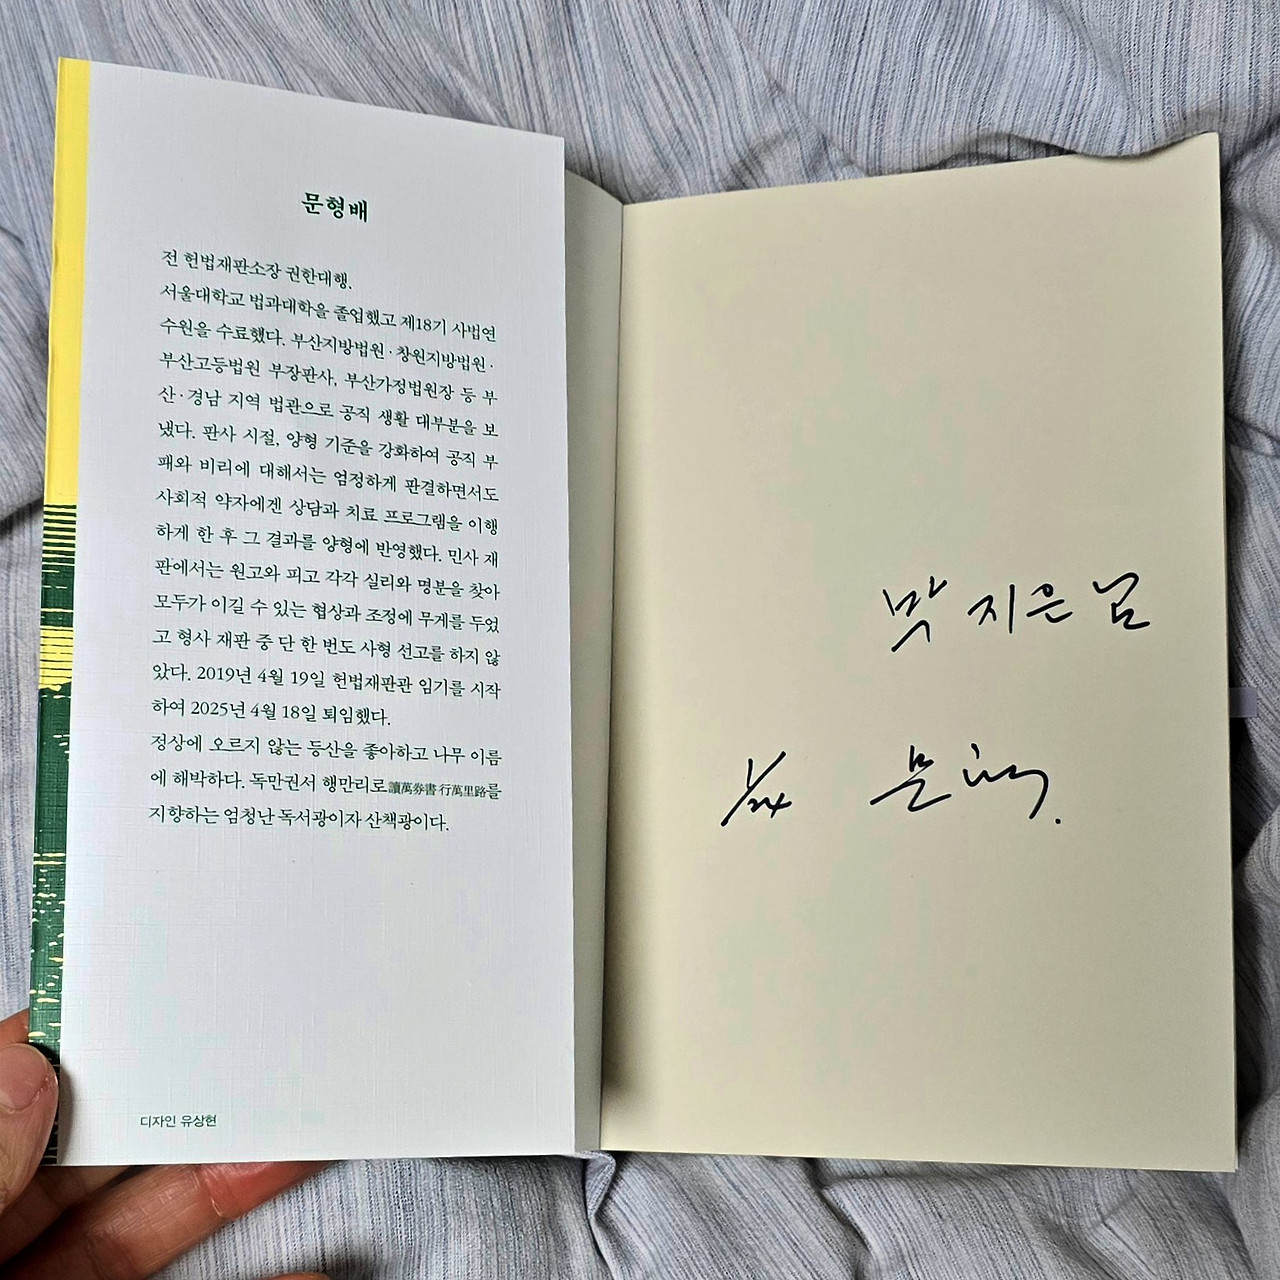 문형배
전 헌법재판소장 권한대행.
서울대학교 법과대학을 졸업했고 제18기 사법연
수원을 수료했다. 부산지방법원·창원지방법원·
부산고등법원 부장판사, 부산가정법원장 등 부
산·경남 지역 법관으로 공직 생활 대부분을 보
냈다. 판사 시절, 양형 기준을 강화하여 공직 부
패와 비리에 대해서는 엄정하게 판결하면서도
사회적 약자에겐 상담과 치료 프로그램을 이행
하게 한 후 그 결과를 양형에 반영했다. 민사 재
판에서는 원고와 피고 각각 실리와 명분을 찾아
모두가 이길 수 있는 협상과 조정에 무게를 두었
고 형사 재판 중 단 한 번도 사형 선고를 하지 않
았다. 2019년 4월 19일 헌법재판관 임기를 시작
하여 2025년 4월 18일 퇴임했다.
정상에 오르지 않는 등산을 좋아하고 나무 이름
에 해박하다. 독만권서 행만리로讀萬券書 行萬里路를
지향하는 엄청난 독서광이자 산책광이다.
디자인 유상현
박지은님
1/24 문형배.